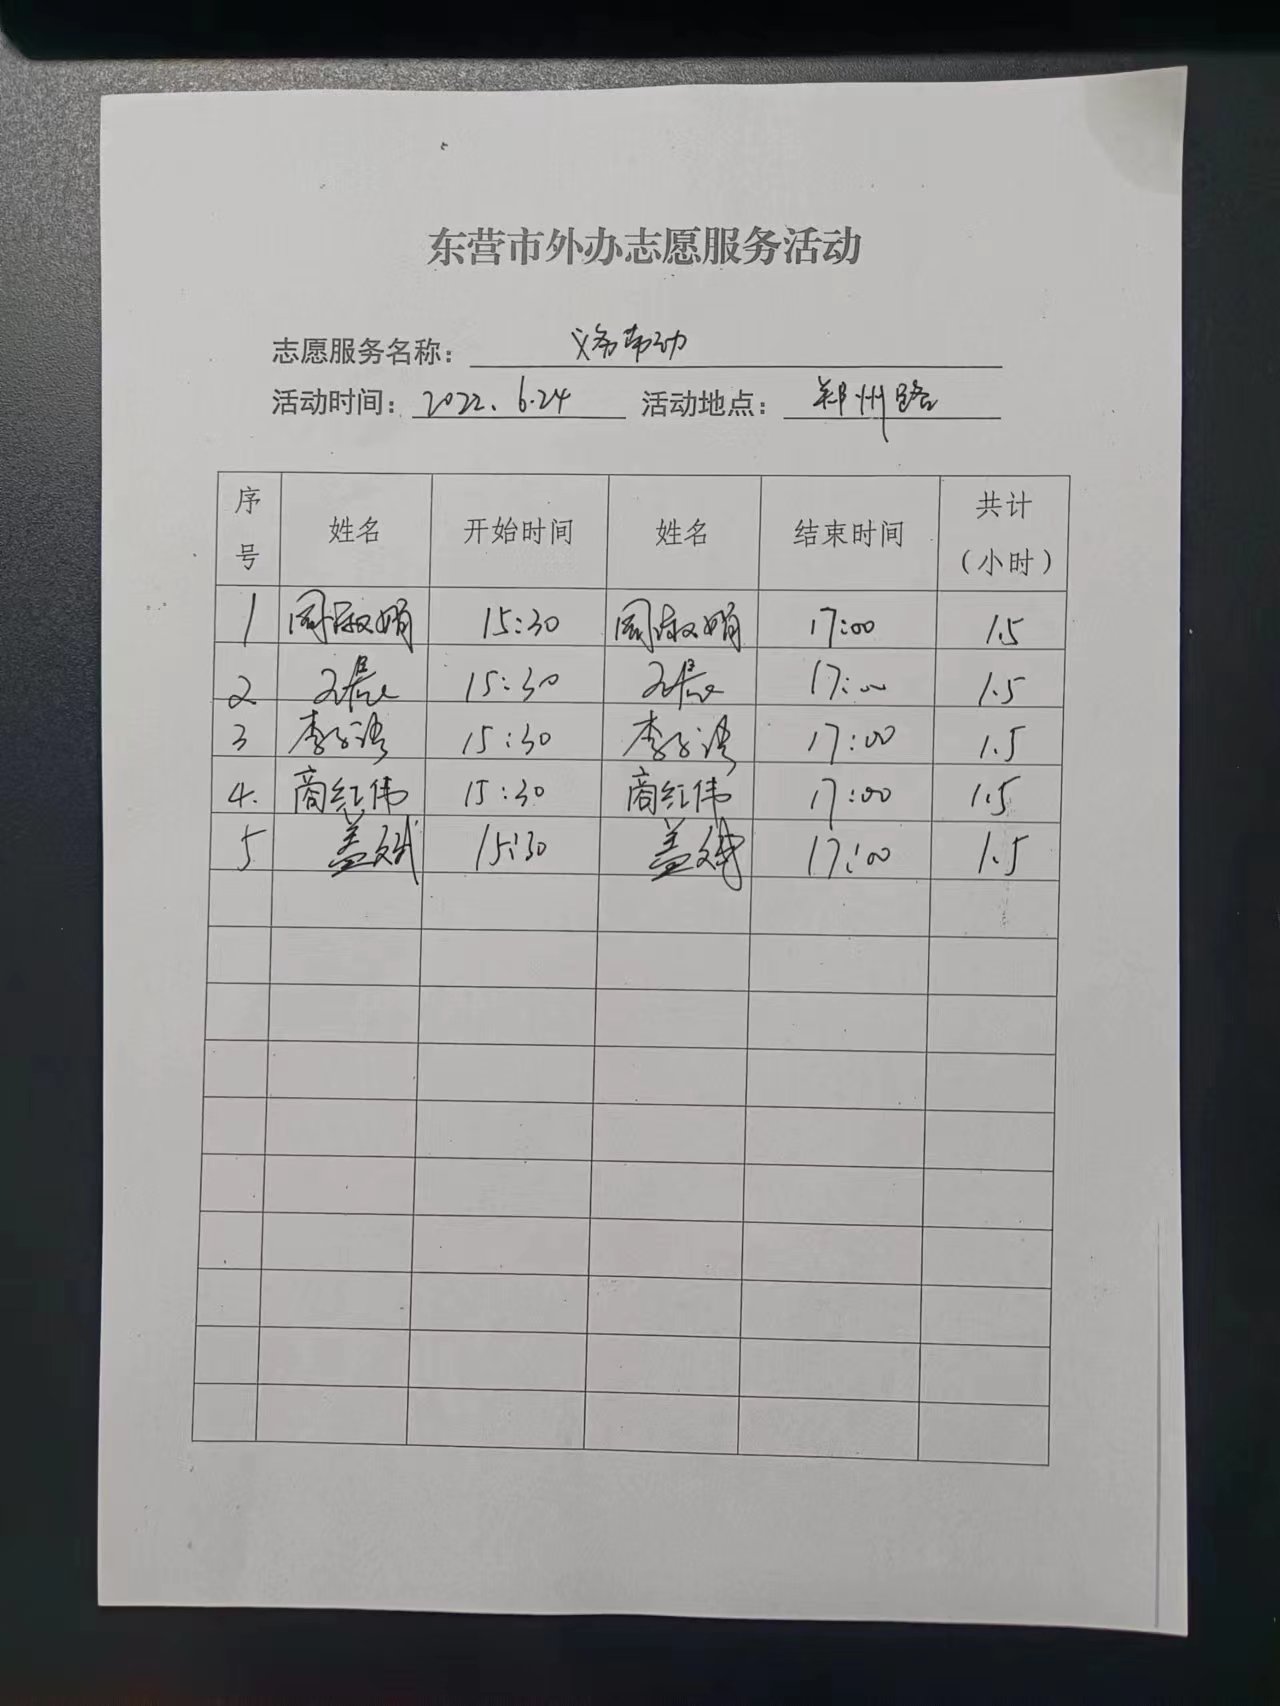 东营市外办志愿服务活动
志愿服务名称：义务劳动
活动时间：2022.6.24 活动地点：郑州路
序号 姓名 开始时间 姓名 结束时间 共计（小时）
1 周淑娟 15:30 周淑娟 17:00 1.5
2 15:30 17:00 1.5
3 李子谦 15:30 李子谦 17:00 1.5
4. 商红伟 15:30 商红伟 17:00 1.5
5 盖文斌 15:30 盖文斌 17:00 1.5